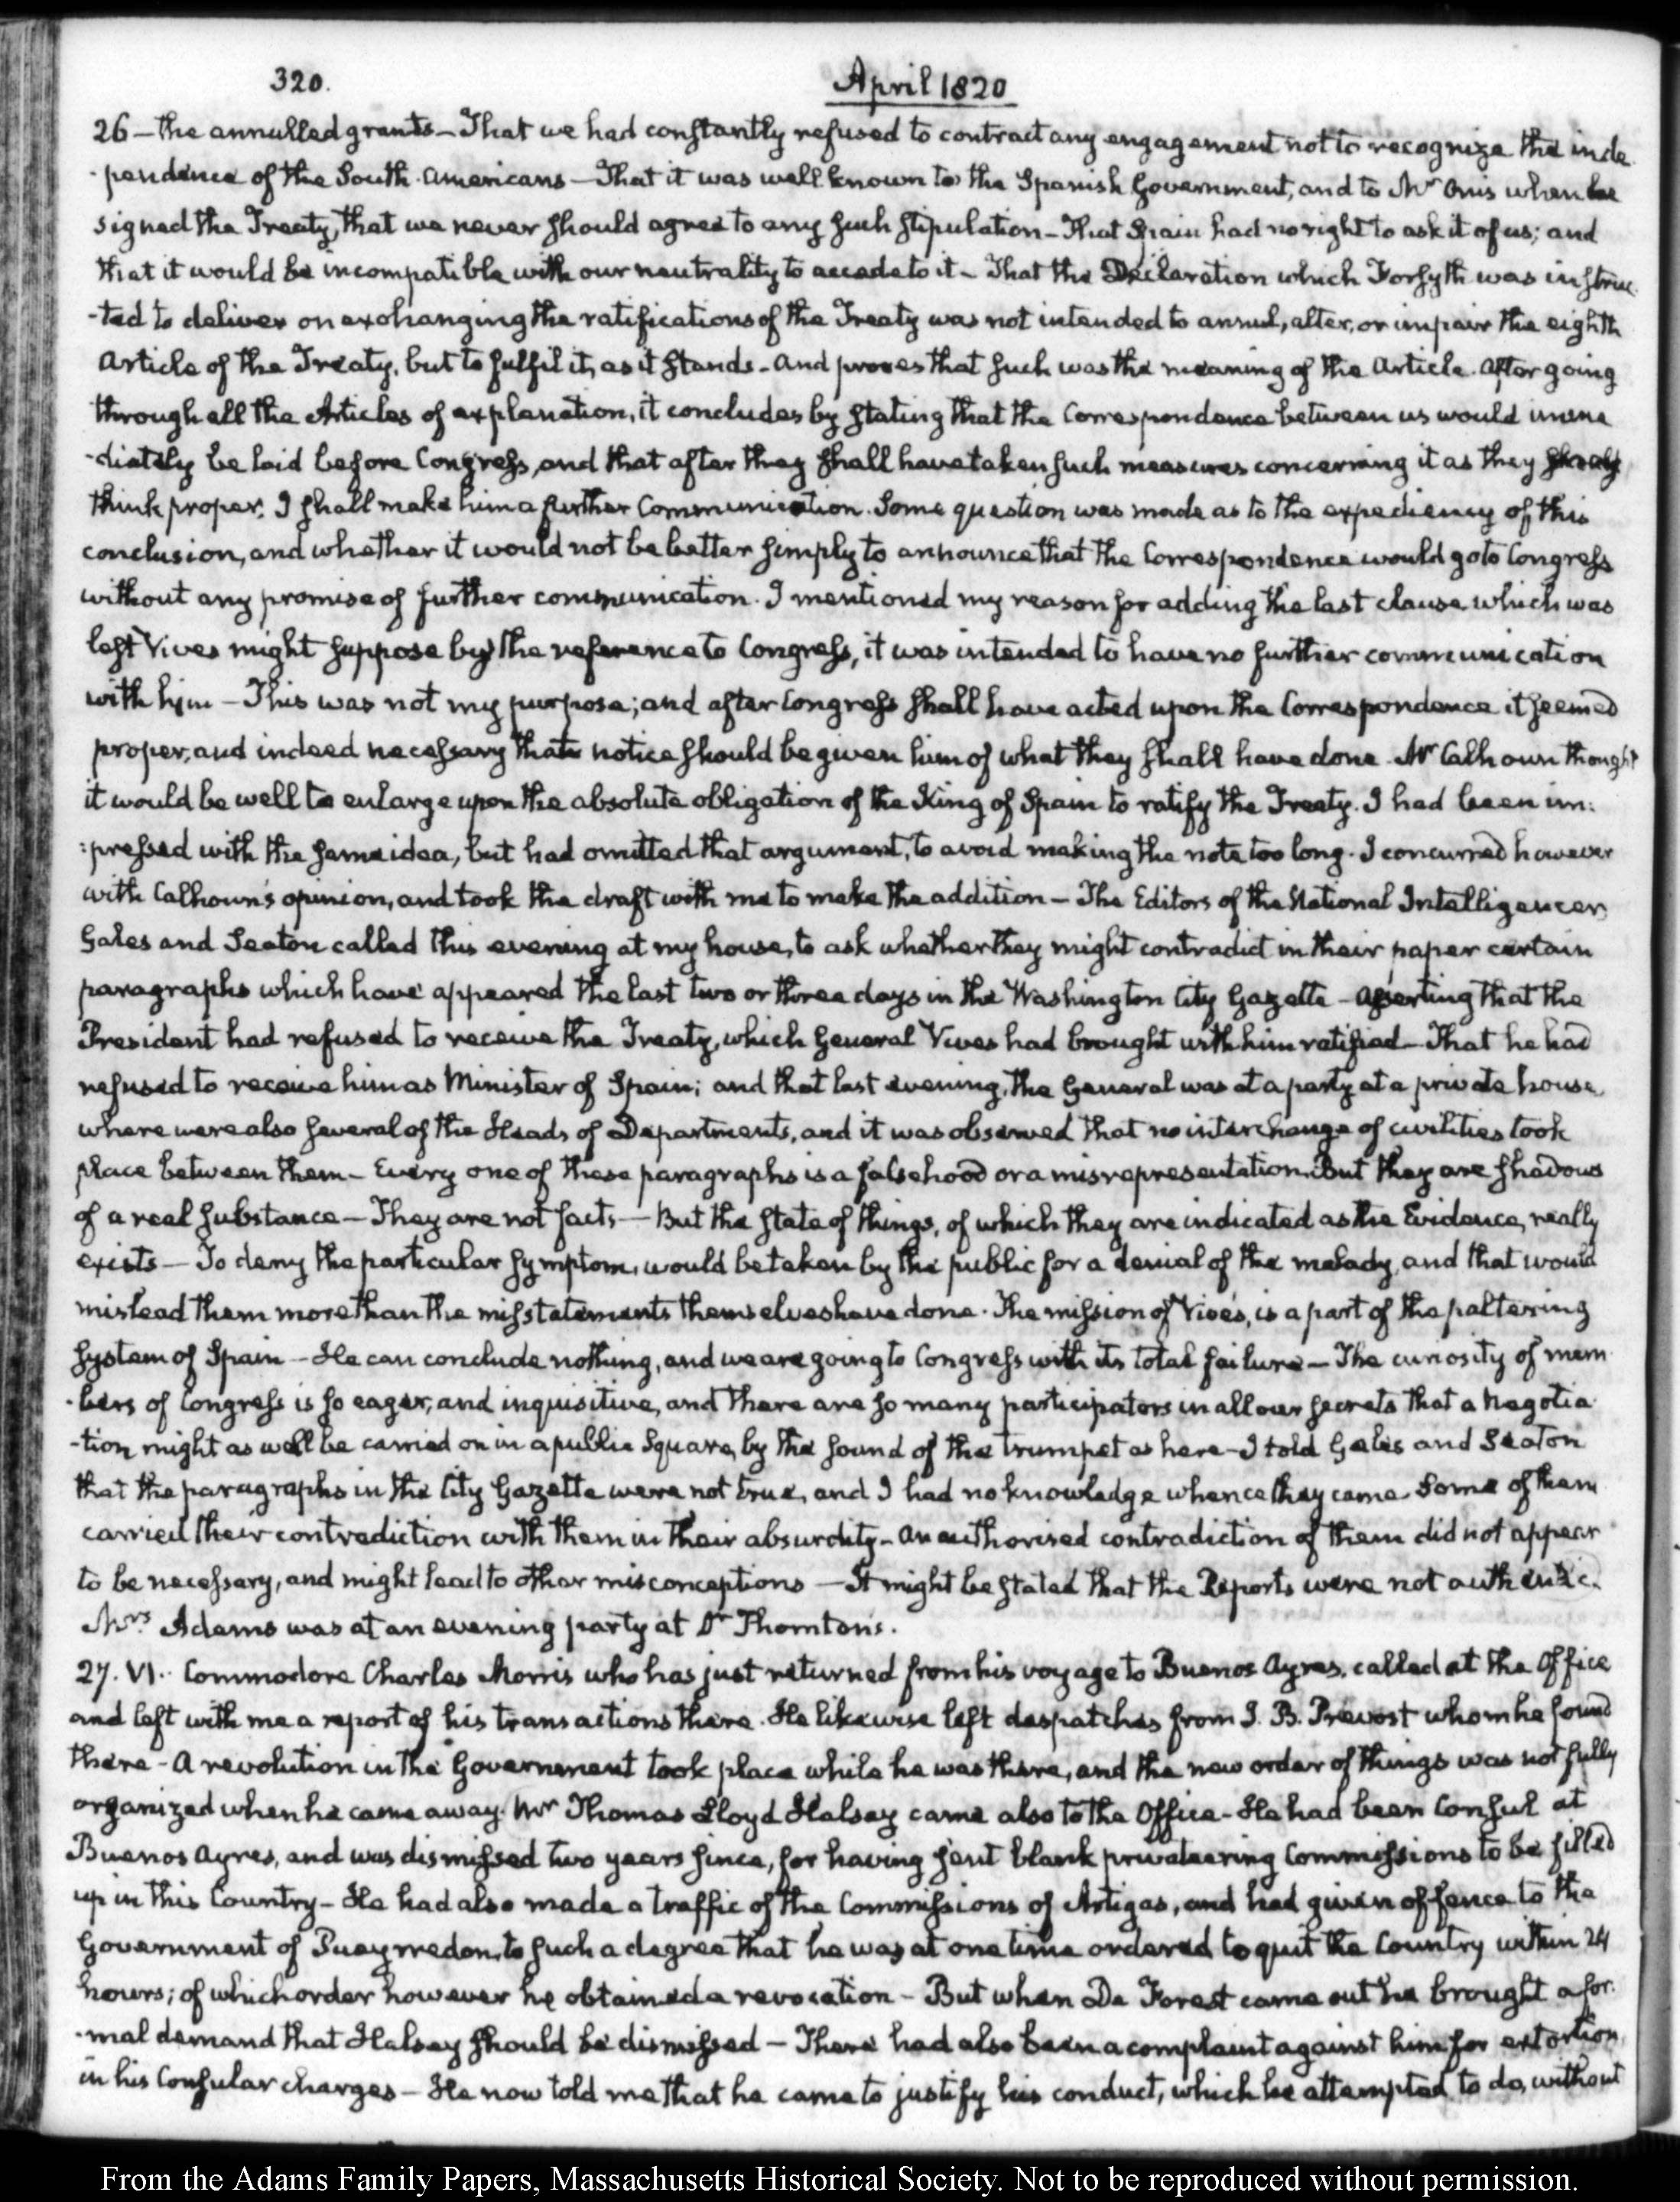 320.
April 1820
26 – the annulled grants – That we had constantly refused to contract any engagement not to recognize the inde
-pendence of the South Americans – That it was well known to the Spanish Government, and to Mr Onis when he
signed the Treaty, that we never should agree to any such stipulation – That Spain had no right to ask it of us; and
that it would be incompatible with our neutrality to accede to it – That the Declaration which Forsyth was instruc
-ted to deliver on exchanging the ratifications of the Treaty was not intended to annul, alter, or impair the eighth
Article of the Treaty, but to fulfil it, as it stands – and proves that such was the meaning of the Article. After going
through all the Articles of explanation, it concludes by stating that the Correspondence between us would imme
-diately be laid before Congress, and that after they shall have taken such measures concerning it as they shall
think proper, I shall make him a further Communication. Some question was made as to the expediency of this
conclusion, and whether it would not be better simply to announce that the Correspondence would go to Congress
without any promise of further communication. I mentioned my reason for adding the last clause which was
lest Vives might suppose by the reference to Congress, it was intended to have no further communication
with him – This was not my purpose; and after Congress shall have acted upon the Correspondence it seemed
proper, and indeed necessary that notice should be given him of what they shall have done. Mr Calhoun thought
it would be well to enlarge upon the absolute obligation of the King of Spain to ratify the Treaty. I had been im:
:pressed with the same idea, but had omitted that argument, to avoid making the note too long. I concurred however
with Calhoun's opinion, and took the draft with me to make the addition – The Editors of the National Intelligencer,
Gales and Seaton called this evening at my house, to ask whether they might contradict in their paper certain
paragraphs which have appeared the last two or three days in the Washington City Gazette – asserting that the
President had refused to receive the Treaty, which General Vives had brought with him ratified – That he had
refused to receive him as Minister of Spain; and that last evening, the General was at a party at a private house
where were also several of the Heads of Departments, and it was observed that no interchange of civilities took
place between them – Every one of these paragraphs is a falsehood or a misrepresentation. But they are shadows
of a real substance – They are not facts – But the state of things, of which they are indicated as the Evidence, really
exists – To deny the particular symptom, would be taken by the public for a denial of the malady, and that would
mislead them more than the misstatements themselves have done. The mission of Vives, is a part of the paltering
system of Spain – He can conclude nothing, and we are going to Congress with its total failure – The curiosity of mem
-bers of Congress is so eager, and inquisitive, and there are so many participators in all our secrets that a Negotia
-tion might as well be carried on in a public Square, by the sound of the trumpet as here – I told Gales and Seaton
that the paragraphs in the City Gazette were not true, and I had no knowledge whence they came. Some of them
carried their contradiction with them in their absurdity – an authorised contradiction of them did not appear
to be necessary, and might lead to other misconceptions – It might be stated that the Reports were not authentic.
Mrs Adams was at an evening party at Dr Thornton's.
27. VI.. Commodore Charles Morris who has just returned from his voyage to Buenos Ayres, called at the Office
and left with me a report of his transactions there. He likewise left despatches from J. B. Prevost whom he found
there – A revolution in the Government took place while he was there, and the new order of things was not fully
organized when he came away. Mr Thomas Lloyd Halsey came also to the Office – He had been Consul at
Buenos Ayres, and was dismissed two years since, for having sent blank privateering Commissions to be filled
up in this Country – He had also made a traffic of the Commissions of Artigas, and had given offence to the
Government of Pueyrredon, to such a degree that he was at one time ordered to quit the Country within 24
hours; of which order however he obtained a revocation – But when De Forest came out he brought a for.
-mal demand that Halsey should be dismissed – There had also been a complaint against him for extortion
in his Consular charges – He now told me that he came to justify his conduct, which he attempted to do, without
From the Adams Family Papers, Massachusetts Historical Society. Not to be reproduced without permission.